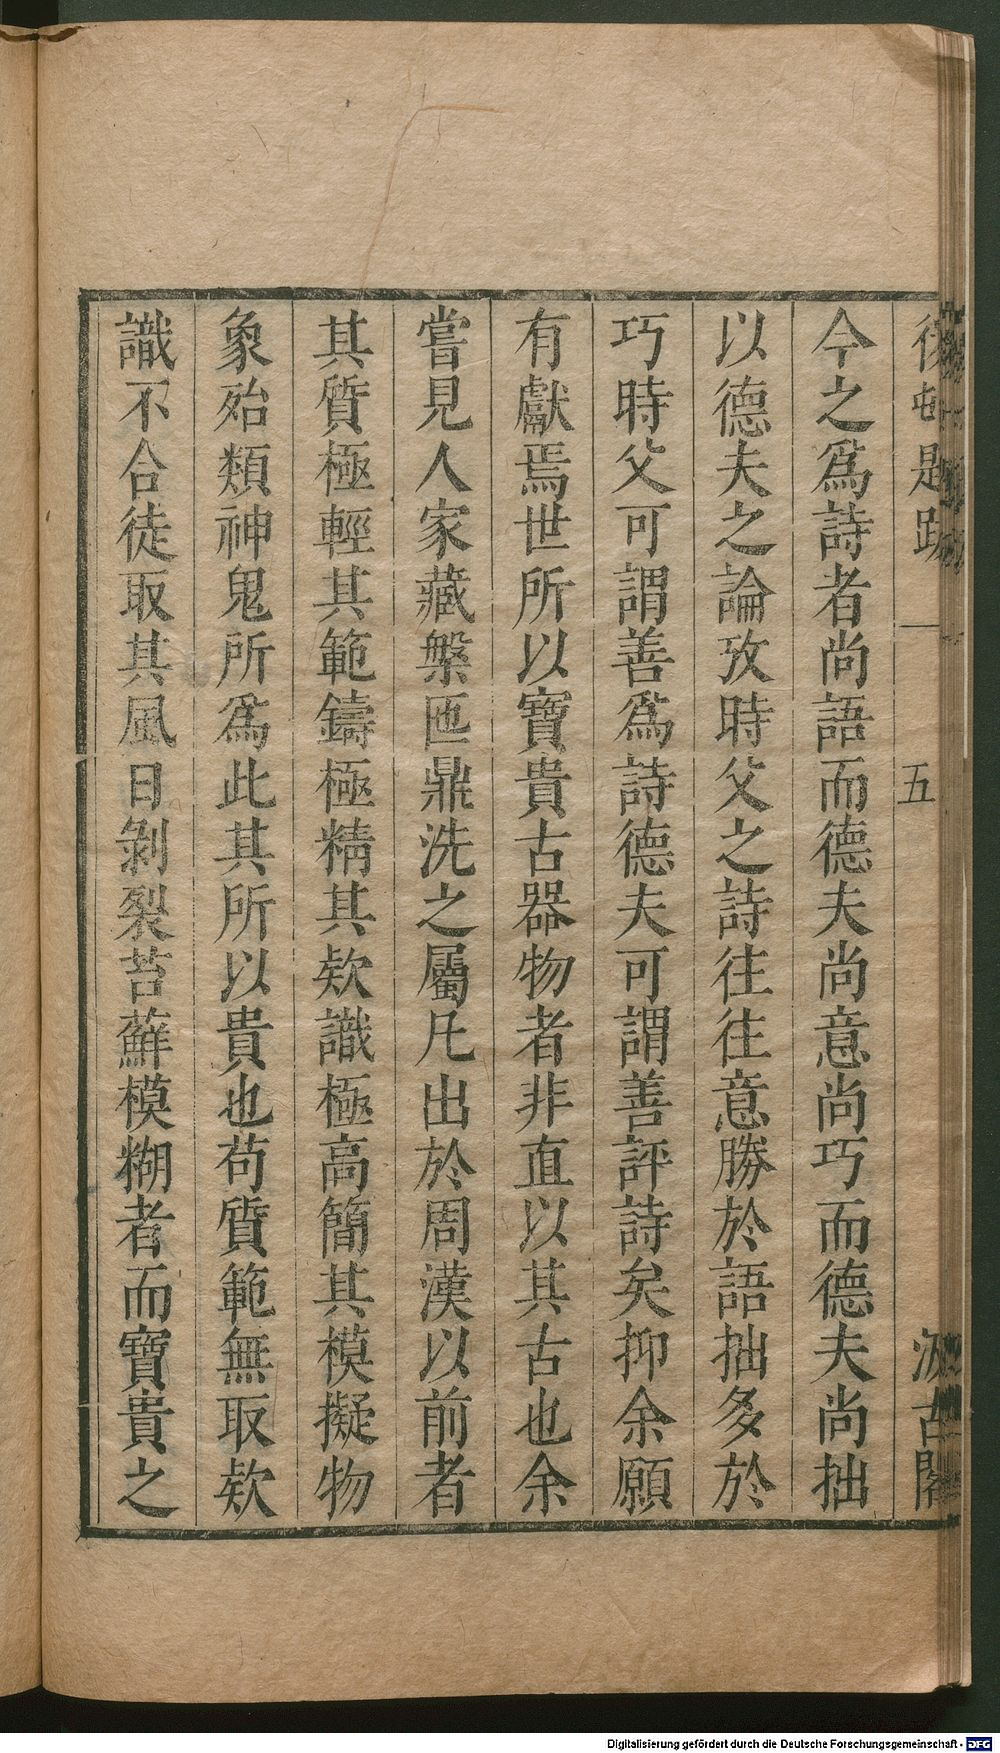 後村題跋 一 五 汲古閣
今之爲詩者尚語而德夫尚意尚巧而德夫尚拙
以德夫之論攷時父之詩徃徃意勝於語拙多於
巧時父可謂善爲詩德夫可謂善評詩矣抑余願
有獻焉世所以寶貴古器物者非直以其古也余
嘗見人家藏槃匜鼎洗之屬凡出於周漢以前者
其質極輕其範鑄極精其欵識極高簡其模擬物
象殆類神鬼所爲此其所以貴也苟質範無取欵
識不合徒取其風日剝裂苔蘚模糊者而寶貴之
Digitalisierung gefördert durch die Deutsche Forschungsgemeinschaft - DFG